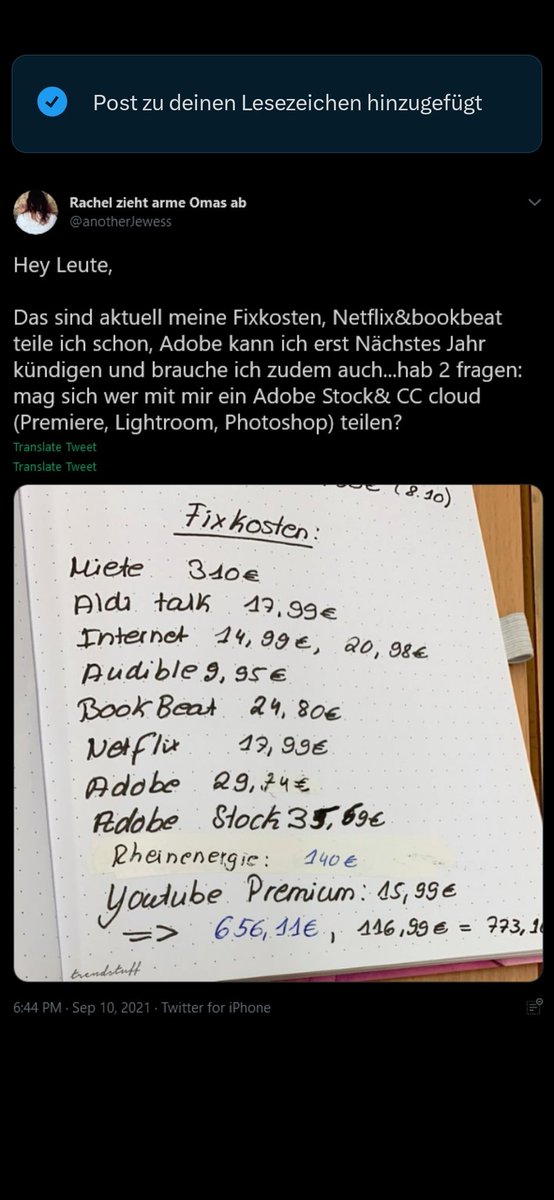 Post zu deinen Lesezeichen hinzugefügt
Rachel zieht arme Omas ab
@anotherJewess
Hey Leute,
Das sind aktuell meine Fixkosten, Netflix&bookbeat
teile ich schon, Adobe kann ich erst Nächstes Jahr
kündigen und brauche ich zudem auch...hab 2 fragen:
mag sich wer mit mir ein Adobe Stock& CC cloud
(Premiere, Lightroom, Photoshop) teilen?
Translate Tweet
Translate Tweet
(8.10)
Fixkosten:
Miete 310€
Aldi talk 17,99€
Internet 14,99€, 20,98€
Audible 9,95€
BookBeat 24,80€
Netflix 17,99€
Adobe 29,74€
Adobe Stock 35,69€
Rheinenergie: 140€
Youtube Premium: 15,99€
=> 656,11€, 116,99€ = 773,1
trendstuff
6:44 PM · Sep 10, 2021 · Twitter for iPhone